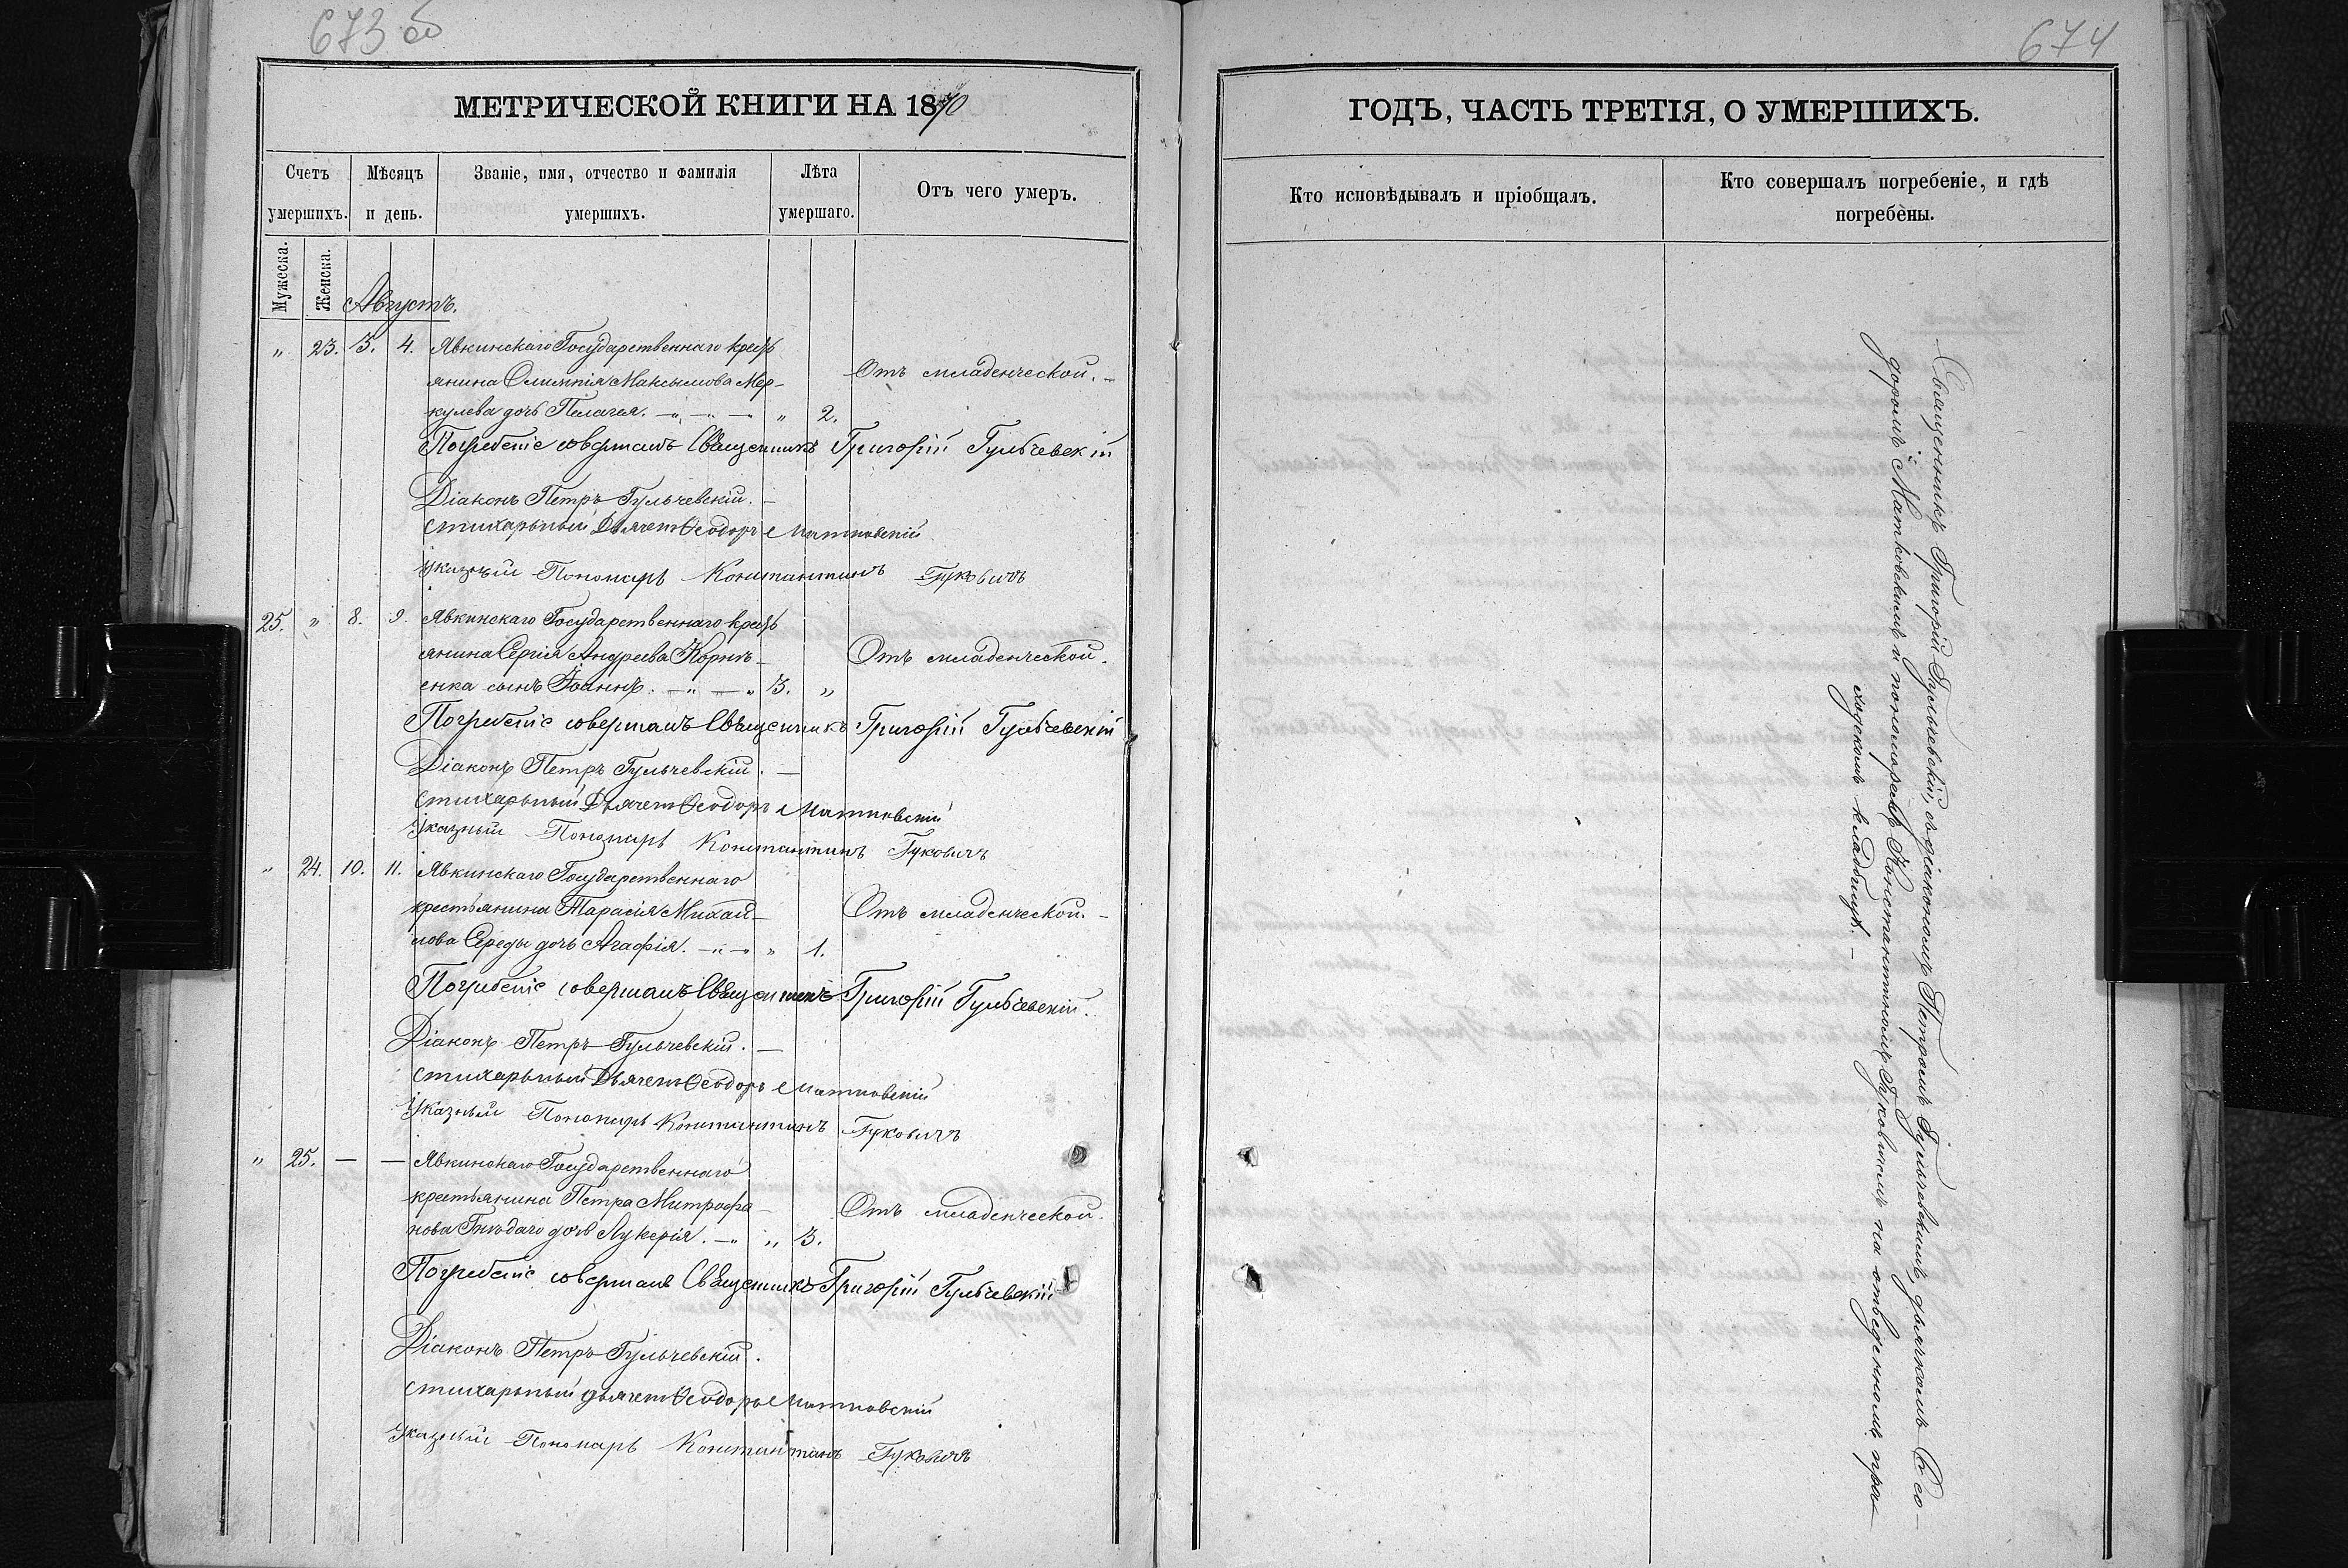 673 об
МЕТРИЧЕСКОЙ КНИГИ НА 1870
Счетъ умершихъ.
Мѣсяцъ и день.
Званіе, имя, отчество и фамилія умершихъ.
Лѣта умершаго.
Отъ чего умеръ.
Мужеска.
Женска.
Августъ.
" 23. 3. 4. Явкинскаго Государственнаго крест
янина Олимпія Максимова Мер-
кулева дочь Пелагея. " 2.
Отъ младенческой.
Погребеніе совершалъ Священникъ Григорій Гульчевскій
Діаконъ Петръ Гульчевскій.
Стихарный Дьячекъ Ѳеодоръ Матковскій
Указный Пономарь Константинъ Гуковичъ
25. " 8. 9. Явкинскаго Государственнаго крест
янина Сергія Андреева Корнѣ-
енка сынъ Іоаннъ. 3. "
Отъ младенческой.
Погребеніе совершалъ Священникъ Григорій Гульчевскій
Діаконъ Петръ Гульчевскій.
Стихарный Дьячекъ Ѳеодоръ Матковскій
Указный Пономарь Константинъ Гуковичъ
" 24. 10. 11. Явкинскаго Государственнаго
крестьянина Тарасія Михай-
лова Середы дочь Агафія. " 1.
Отъ младенческой.
Погребеніе совершалъ Священникъ Григорій Гульчевскій.
Діаконъ Петръ Гульчевскій.
Стихарный Дьячекъ Ѳеодоръ Матковскій
Указный Пономарь Константинъ Гуковичъ
" 25. — — Явкинскаго Государственнаго
крестьянина Петра Митрофа-
нова Гнѣдаго дочь Лукерія. " 3.
Отъ младенческой.
Погребеніе совершалъ Священникъ Григорій Гульчевскій
Діаконъ Петръ Гульчевскій.
Стихарный Дьячекъ Ѳеодоръ Матковскій
Указный Пономарь Константинъ Гуковичъ
674
ГОДЪ, ЧАСТЬ ТРЕТІЯ, О УМЕРШИХЪ.
Кто исповѣдывалъ и пріобщалъ.
Кто совершалъ погребеніе, и гдѣ погребены.
Священникъ Григорій Гульчевскій, съ діакономъ Петромъ Гульчевскимъ, дьячкомъ Ѳео-
доромъ Матковскимъ и пономаремъ Константиномъ Гуковичемъ на отведенномъ при-
ходскомъ кладбищѣ.